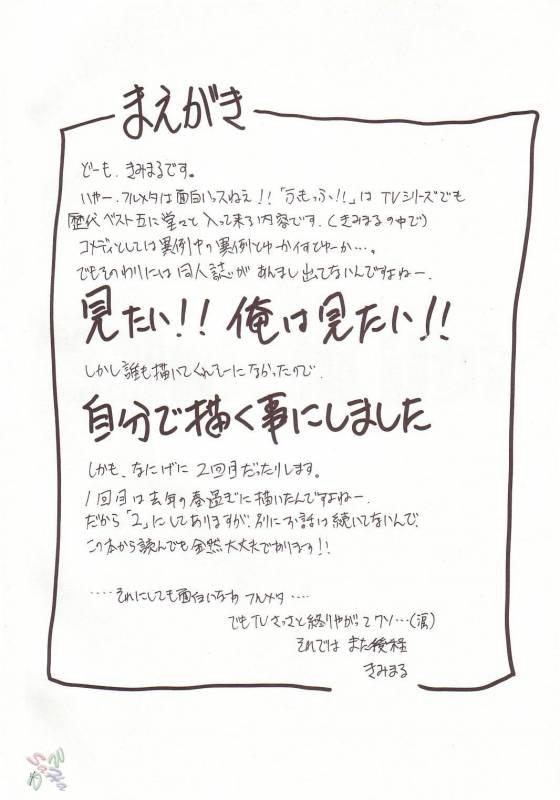 まえがき
どーも、きみまるです。
いやー、フルメタは面白いっスねえ!!「ふもっふ!!」は TVシリーズでも
歴代ベスト五に堂々と入って来る内容です。(きみまるの中で)
コメディとしては異例中の異例とゆーか何すとゆーか…。
でもそのわりには同人誌があんまし出てないんですよねー。
見たい!! 俺は見たい!!
しかし誰も描いてくんそーになかったので、
自分で描く事にしました
しかも、なにげに 2回目だったりします。
1回目は去年の春過ぎに描いたんですよねー。
だから「2」にしてありますが、別にお話は続いてないんで、
この本から読んでも全然大丈夫であります!!
‥‥それにしても面白いなあ フルメタ‥‥
でもTV さっさと終りやがって クソ…(涙)
それでは また後程
きみまる